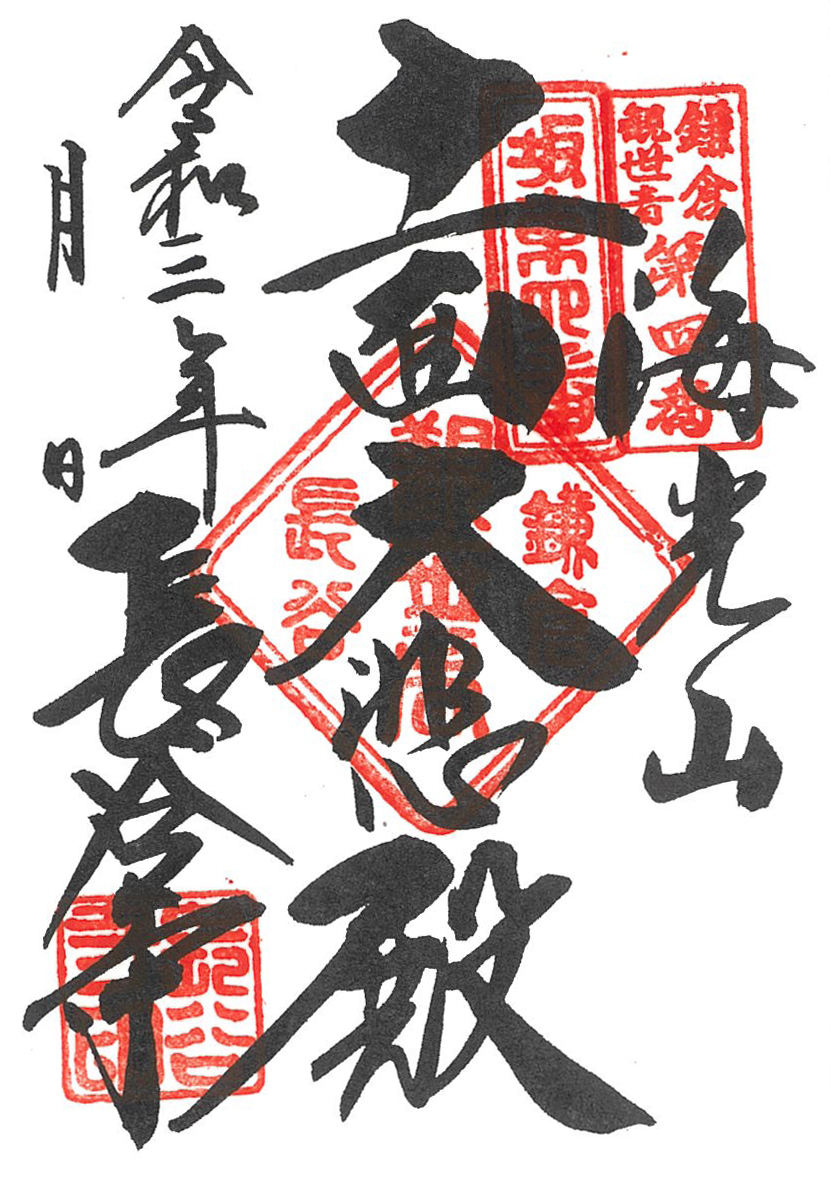 鎌倉
観世音
第四番
坂東四番
海光山
十一面大悲殿
鎌倉
長谷
令和三年
月
日
長谷寺